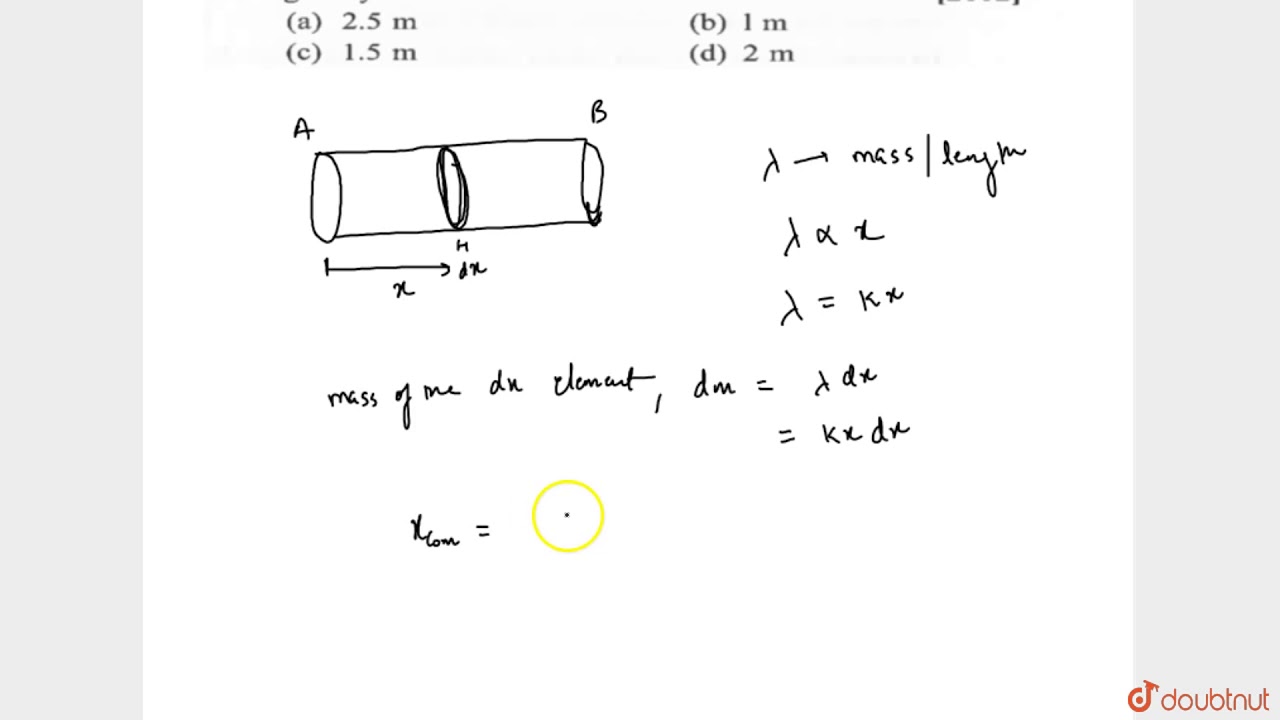 (a) 2.5 m (b) 1 m
(c) 1.5 m (d) 2 m
A B
λ → mass | length
λ ∝ x
x dx
λ = Kx
mass of the dx element, dm = λ dx
= Kx dx
xcom =
doubtnut